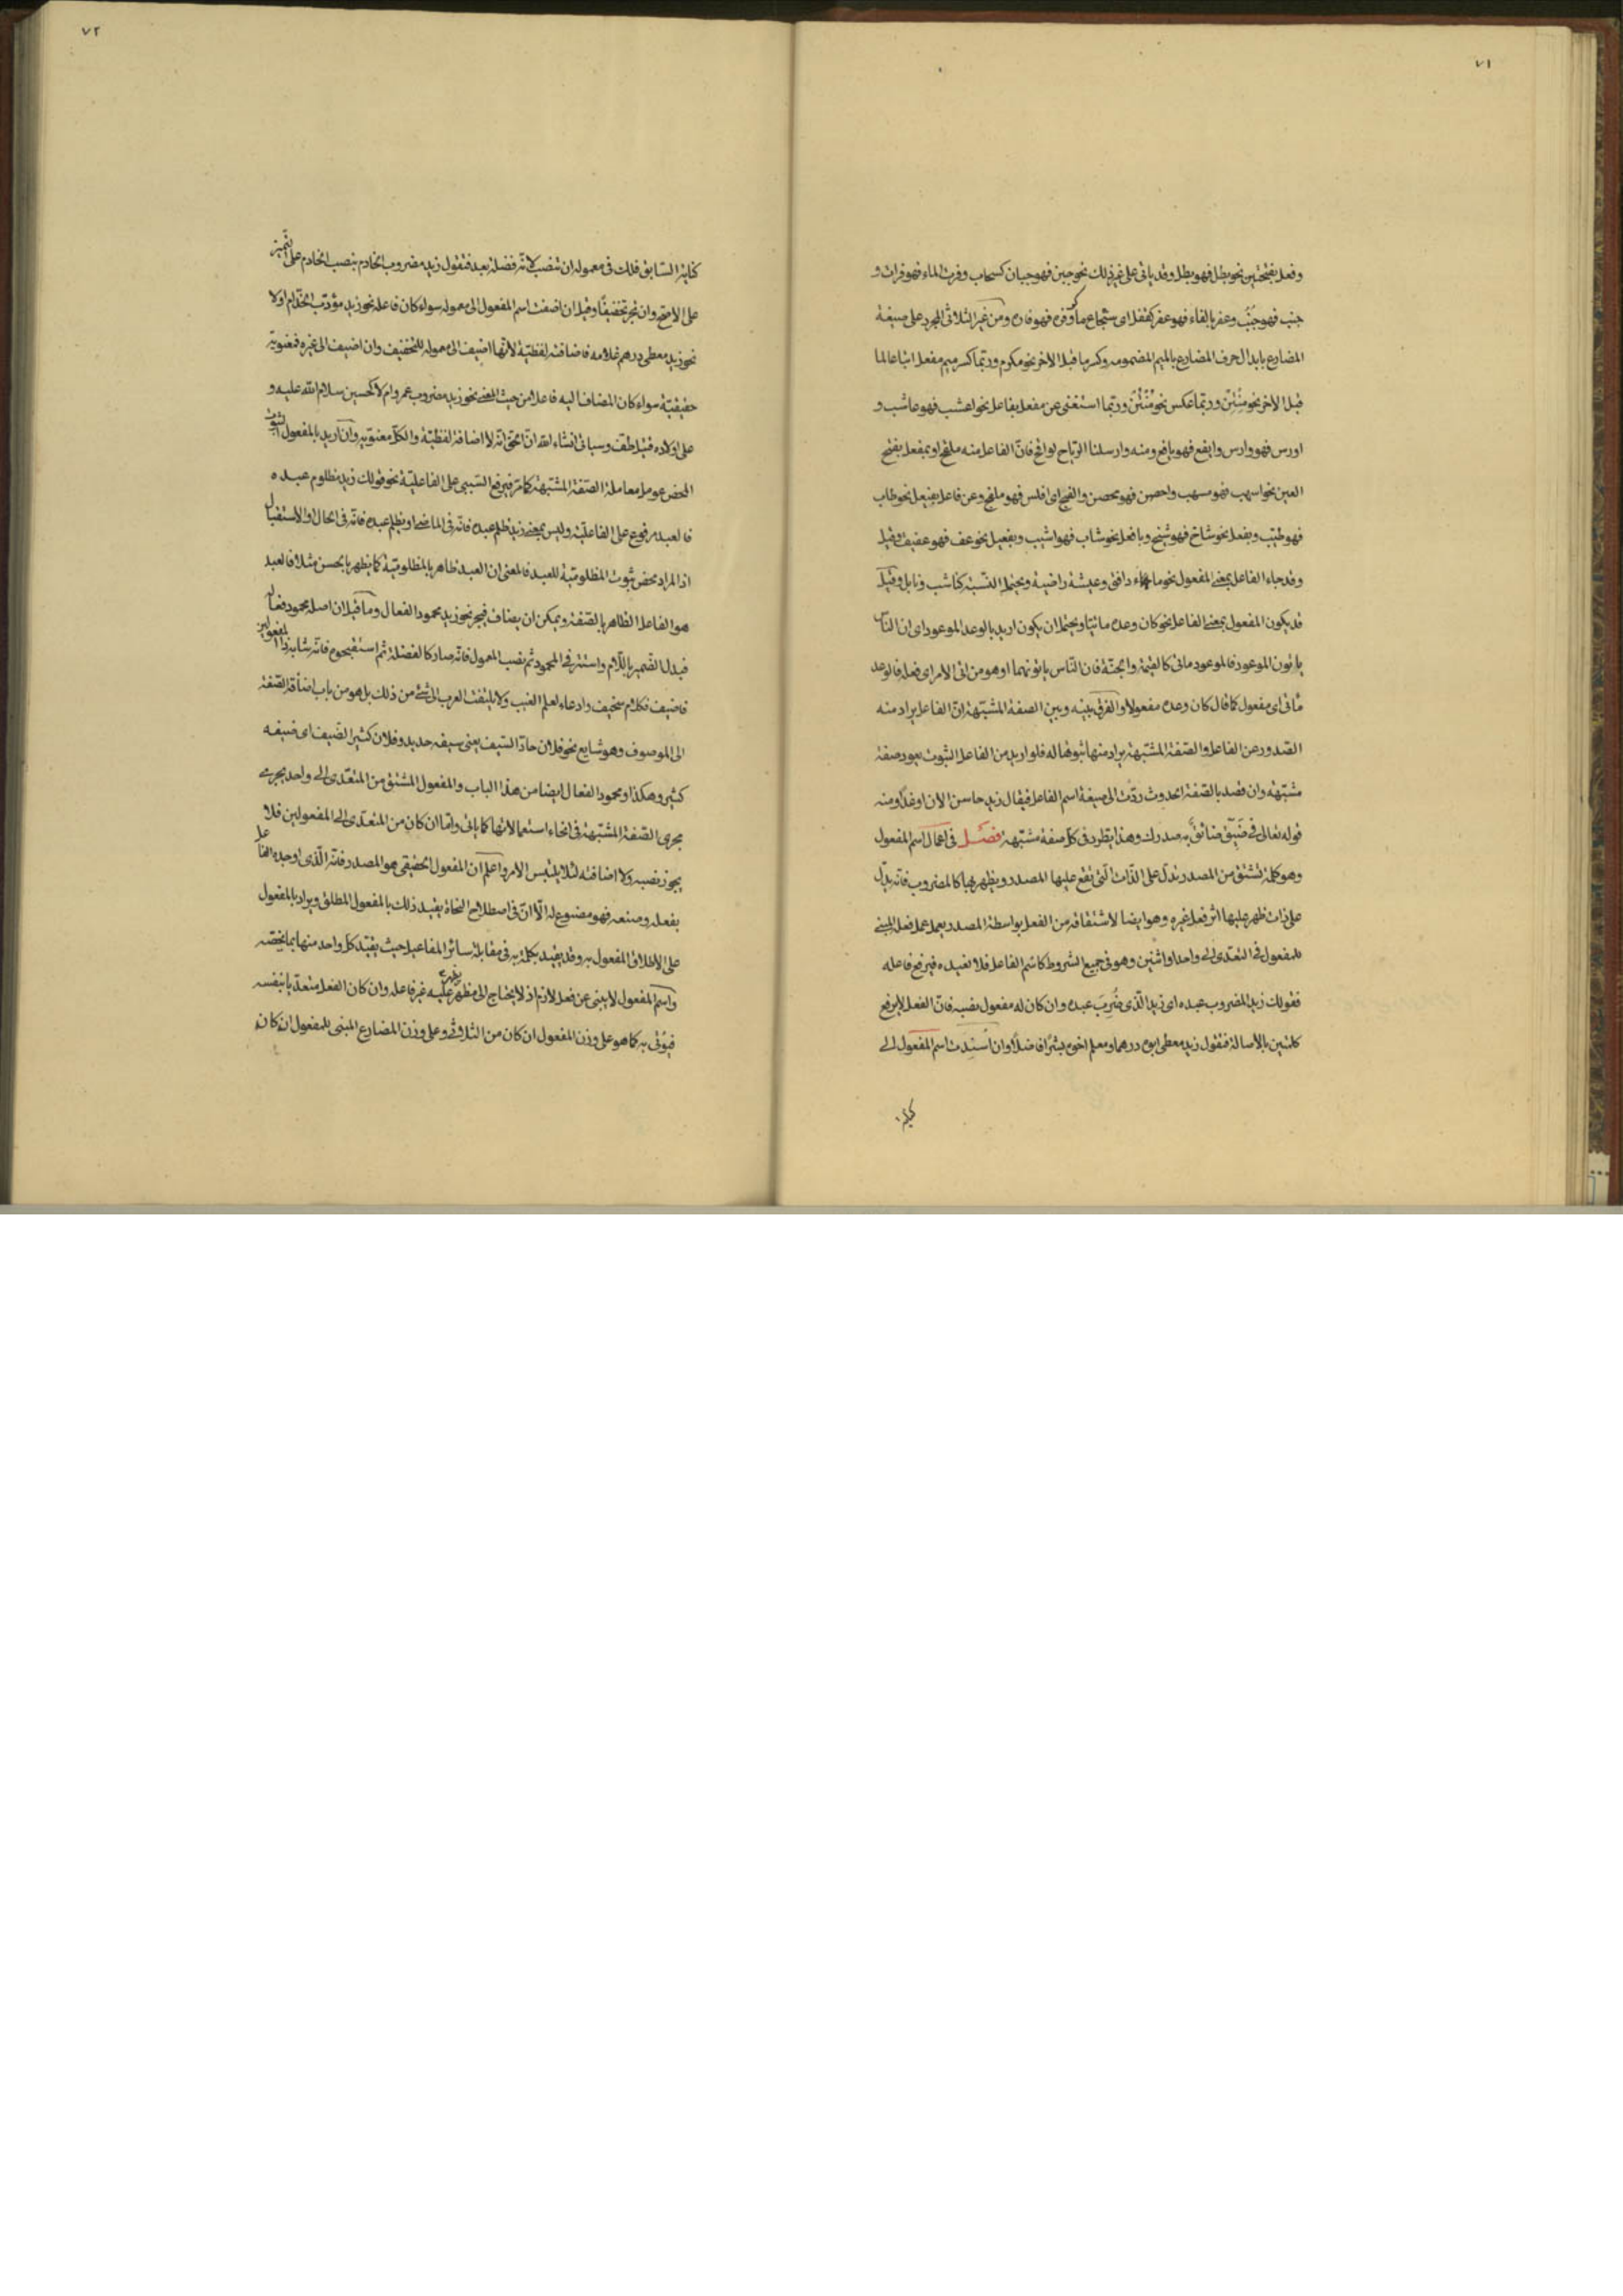 ٧١
وفعل بفتحتين نحو بطل فهو بطل وقد ياتى على غير ذلك نحو جبن فهو جبان كسحاب وفرت الماء فهو فرات و
جنب فهو جُنُب وعفر بالفاء فهو عفر كقفل اى شجاع ماكر وفره فهو فاره ومن غير الثلاثى المجرد على صيغة
المضارع بابدال حرف المضارع بالميم المضمومه وكسر ما قبل الاخر نحو مكرم وربّما كسر ميم مفعل اتباعا لما
قبل الاخر نحو مِنْتِن وربّما عكس نحو مُنْتُن وربّما استغنى عن مفعل بفاعل نحو اعشب فهو عاشب و
اورس فهو وارس وايفع فهو يافع ومنه وارسلنا الرّياح لواقح فانّ الفاعل منه ملقح او بمفعل بفتح
العين نحو اسهب فهو مسهب واحصن فهو محصن والفج اى افلس فهو ملفج وعن فاعل بفيعل نحو طاب
فهو طيّب وبفعل نحو شاخ فهو شيخ وبافعل نحو شاب فهو اشيب وبفعيل نحو عف فهو عفيف وقيل
وقد جاء الفاعل بمعنى المفعول نحو ماء دافق وعيشة راضية ويحتمل النّسبة كناشب ونابل وقيل
قد يكون المفعول بمعنى الفاعل نحو كان وعده ماتيّا ويحتمل ان يكون اريد بالوعد الموعود اى ان النّاس
ياتون الموعود فالموعود ماتى كالقيمة والجنّة فان النّاس ياتونهما او هو من اتى الامر اى فعله فالوعد
ماتى اى مفعول كما قال كان وعده مفعولا والفرق بينه وبين الصفة المشبّهة انّ الفاعل يراد منه
الصّدور عن الفاعل والصّفة المشبّهة يراد منها ثبوتها له فلو اريد من الفاعل الثبوت يعود صفة
مشبّهة وان قصد بالصّفة الحدوث ردّت الى صيغة اسم الفاعل فيقال زيد حاسن الان او غداً ومنه
قوله تعالى فى ضَيِّق ضائق به صدرك وهذا يطرد فى كلّ صفة مشبّهة فصل فى اعمال اسم المفعول
وهو كلمة تشتق من المصدر تدلّ على الذّات الّتى تقع عليها المصدر ويظهر بها كالمضروب فانّه يدلّ
على ذات ظهر عليها اثر فعل غيره وهو ايضا لاشتقاقه من الفعل بواسطة المصدر يعمل عمل فعله المبنى
للمفعول فى التعدّى الى واحد او اثنين وهو فى جميع الشروط كاسم الفاعل فلا نعيده فيرفع فاعله
فقولك زيد المضروب عبده اى زيد الّذى ضُرِبَ عبده وان كان له مفعول نصبه فانّ الفعل لا يرفع
كلمتين بالاصالة فتقول زيد معطى ابوه درهما ومعلم اخوه بشراً فاضلاً وان اسندت اسم المفعول الى
٧٢
كناية السّابق فلك فى معموله ان تنصب لانّه فضلة بعد فتقول زيد مضروب الخادم بنصب الخادم على التّميز
على الاصح وان تجر تخفيفاً وقيل ان اضفت اسم المفعول الى معموله سواء كان فاعله نحو زيد مؤدّب الخدّام اولا
نحو زيد معطى درهم غلامه فاضافته لفظيّة لانّها اضيف الى معموله للتّخفيف وان اضيف الى غيره فمعنويّة
حقيقيّة سواء كان المضاف اليه فاعلا من حيث المعنى نحو زيد مضروب عمرو ام لا كحسين سلام اللّه عليه و
على اولاده قتيل طفّ وسياتى انشاء اللّه انّ الحق انّه لا اضافة لفظيّة والكلّ معنويّة وان اريد بالمفعول الثبوت
المحض عومل معاملة الصّفة المشبّهة كما مر فيرفع السّببى على الفاعليّة نحو قولك زيد مظلوم عبده
فالعبد مرفوع على الفاعليّة وليس بمعنى زيد ظلم عبده فانّه فى الماضى او يظلم عبده فانّه فى الحال والاستقبال
اذ المراد محض ثبوت المظلوميّة للعبد فالمعنى ان العبد ظاهر بالمظلوميّة كما يظهر بالحسن مثلا فالعبد
هو الفاعل الظاهر بالصّفة ويمكن ان يضاف فيجر نحو زيد محمود الفعال وما قيل ان اصله محمود فعاله
فبدل الضّمير باللّام واستتر فى المحمود ثم نصب المعمول فانّه صار كالفضلة ثم استقبحوه فانّه شابه ذا المفعولين
فاضيف فكلام سخيف وادعاء لعلم الغيب ولا يلتفت العرب الى شئ من ذلك بل هو من باب اضافة الصّفة
الى الموصوف وهو شايع نحو فلان حادّ السّيف يعنى سيفه حديد وفلان كثير الضّيف اى ضيفه
كثير وهكذا ومحمود الفعال ايضا من هذا الباب والمفعول المشتق من المتعدّى الى واحد يجرى
مجرى الصّفة المشبّهة فى انحاء استعمالاتها كما ياتى وامّا ان كان من المتعدّى الى المفعولين فلا
يجوز نصبه ولا اضافته لئلا يلتبس الامر واعلم ان المفعول الحقيقى هو المصدر فانّه الّذى اوجده الفاعل
بفعله وصنعه فهو مصنوع له الّا انّ فى اصطلاح النحاة يقيد ذلك بالمفعول المطلق ويراد بالمفعول
على الاطلاق المفعول به وقد يقيد بكلمة به فى مقابلة سائر المفاعيل حيث يقيّد كلّ واحد منها بما يخصّه
واسم المفعول لا يبنى عن فعل لازم اذ لا يحتاج الى مظهر عليه غير فاعله وان كان الفعل متعدّيا بنفسه
فيؤتى به كما هو على وزن المفعول ان كان من الثلاثى وعلى وزن المضارع المبنى للمفعول ان كان